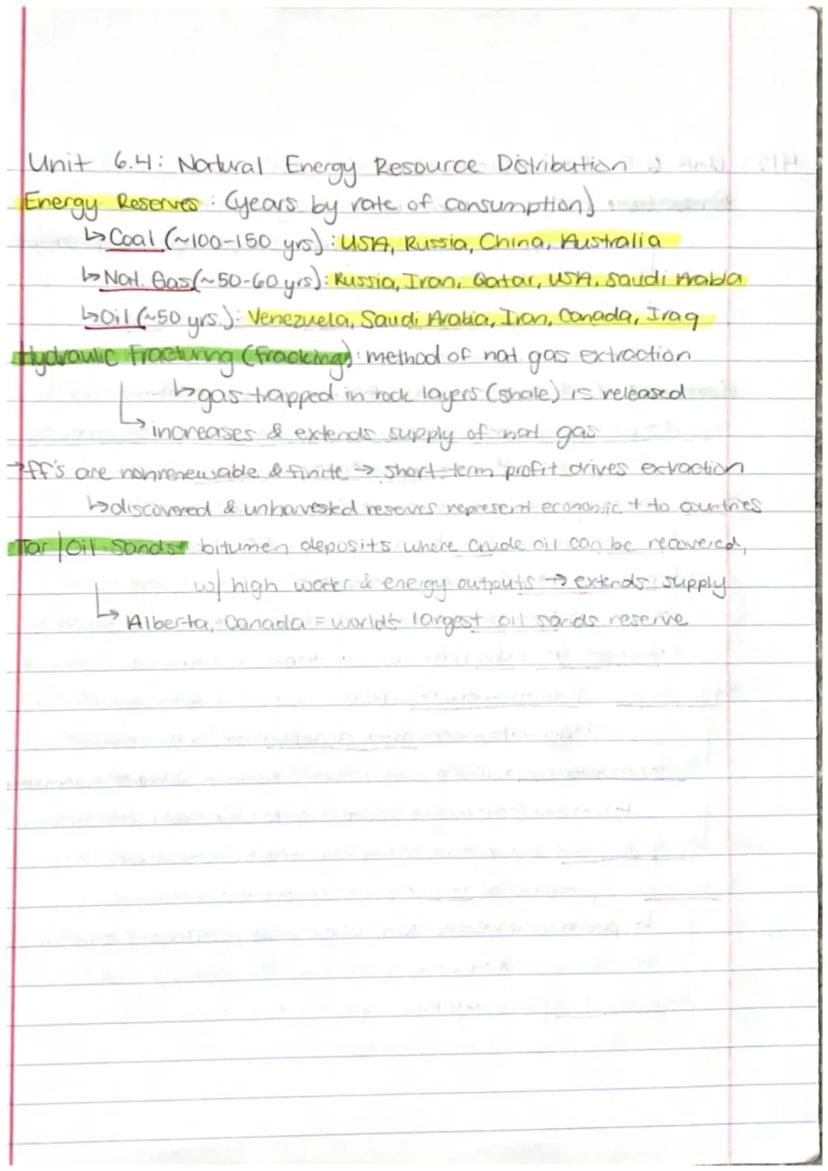 Unit 6.4: Natural Energy Resource Distribution
Energy Reserves: (years by rate of consumption)
↳Coal (~100-150 yrs): USA, Russia, China, Australia
↳Nat. Gas(~50-60 yrs): Russia, Iran, Qatar, USA, Saudi Arabia
↳Oil (~50 yrs.): Venezuela, Saudi Arabia, Iran, Canada, Iraq
Hydraulic Fracturing (Fracking): method of nat gas extraction
↳gas trapped in rock layers (shale) is released
↳increases & extends supply of nat gas
→ff's are nonrenewable & finite → short-term profit drives extraction
↳discovered & unharvested reserves represent economic + to countries
Tar/Oil Sands: bitumen deposits where crude oil can be recovered,
w/ high water & energy outputs → extends supply
↳Alberta, Canada = world's largest oil sands reserve